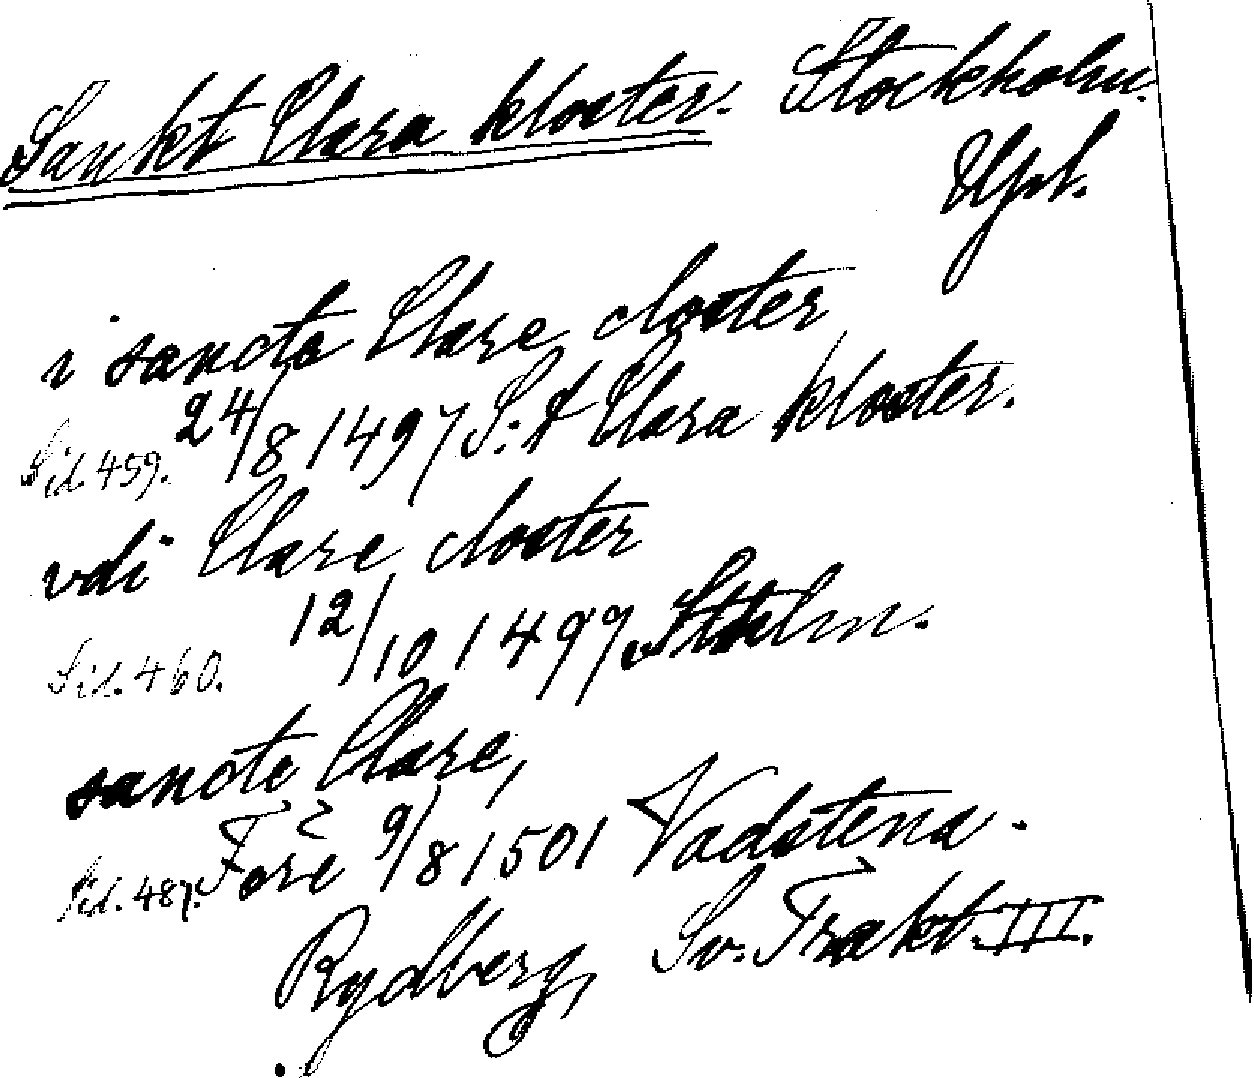 Sankt Clara kloster. Stockholm.
Upl.
i sancte Clare closter
Sid. 459. 24/8 1497 S:t Clara kloster.
vdi Clare closter
Sid. 460. 12/10 1497 Sthlm.
sancte Clare,
Sid. 487. Före 9/8 1501 Vadstena.
Rydberg, Sv. Trakt. III.